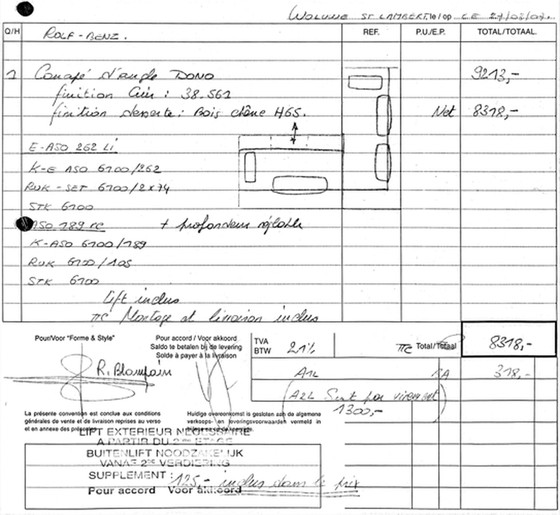 WOLUWE ST LAMBERT le/op CE 27/03/07.
Q/H REF. P.U./E.P. TOTAL/TOTAAL
ROLF-BENZ.
1 Canapé d'angle DONO 9213,-
finition Cuir : 38.561
finition desserte : Bois chêne H65. Net 8318,-
E-ASO 262 Li
K-E ASO 6100/262
RUK-SET 6100/2x74
STK 6100
ASO 189 re + profondeur réglable
K-ASO 6100/189
RUK 6100/105
STK 6100
Lift inclus
TTC Montage et livraison inclus
Pour/Voor "Forme & Style"
Pour accord / Voor akkoord
Saldo te betalen bij de levering
Solde à payer à la livraison
TVA
BTW 21% TTC Total/Totaal 8318,-
R. Blampain
A1L CA 318,-
(A2L Sur par virement)
1300,-
La présente convention est conclue aux conditions
générales de vente et de livraison reprises au verso
et en annexe des présentes.
Huidige overeenkomst is gesloten aan de algemene
verkoops- en leveringsvoorwaarden vermeld in
LIFT EXTERIEUR NECESSAIRE
A PARTIR DU 2ème ETAGE
BUITENLIFT NOODZAKELIJK
VANAF 2de VERDIERING
SUPPLEMENT : 125,- inclus dans le prix
Pour accord Voor akkoord